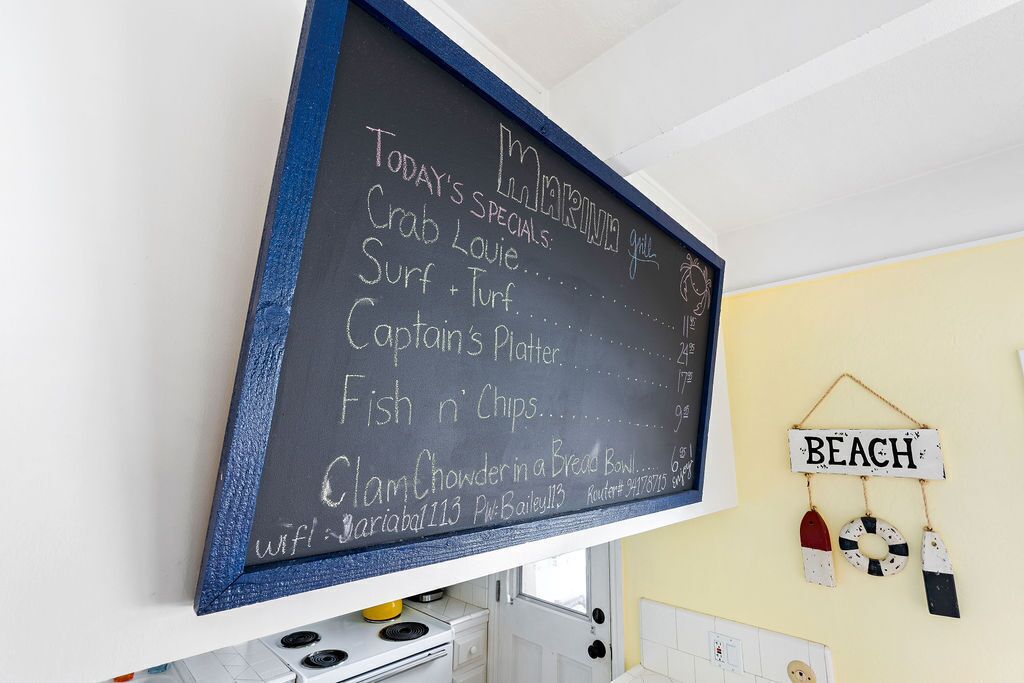 MARINA grill
TODAY'S SPECIALS:
Crab Louie............ 11 95
Surf + Turf............ 24 95
Captain's Platter............ 17 95
Fish n' Chips............ 9 95
Clam Chowder in a Bread Bowl...... 6 95
wifi: Jariaba1113 PW: Bailey113 Router# 94178715
BEACH